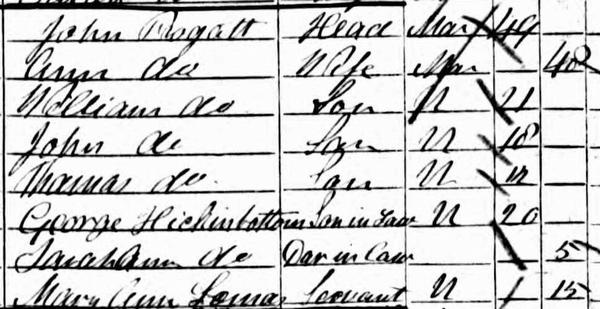 John Frogatt Head Mar 49
Ann do Wife Mar 48
William do Son U 21
John do Son U 18
Thomas do Son U 12
George Hickinbottom Son in Law U 20
Sarah Ann do Daur in Law 5
Mary Ann Lomas Servant U 15